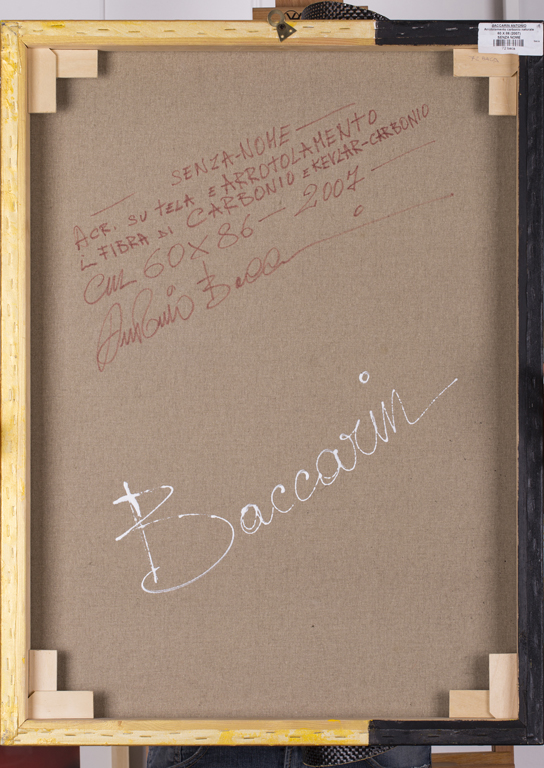 BACCARIN ANTONIO
60 X 86 (2007)
SENZA NOME
SENZA-NOME
ACR. SU TELA E ARROTOLAMENTO
FIBRA DI CARBONIO E KEVLAR-CARBONIO
CM 60X86 - 2007
Antonio Bacca
Baccarin